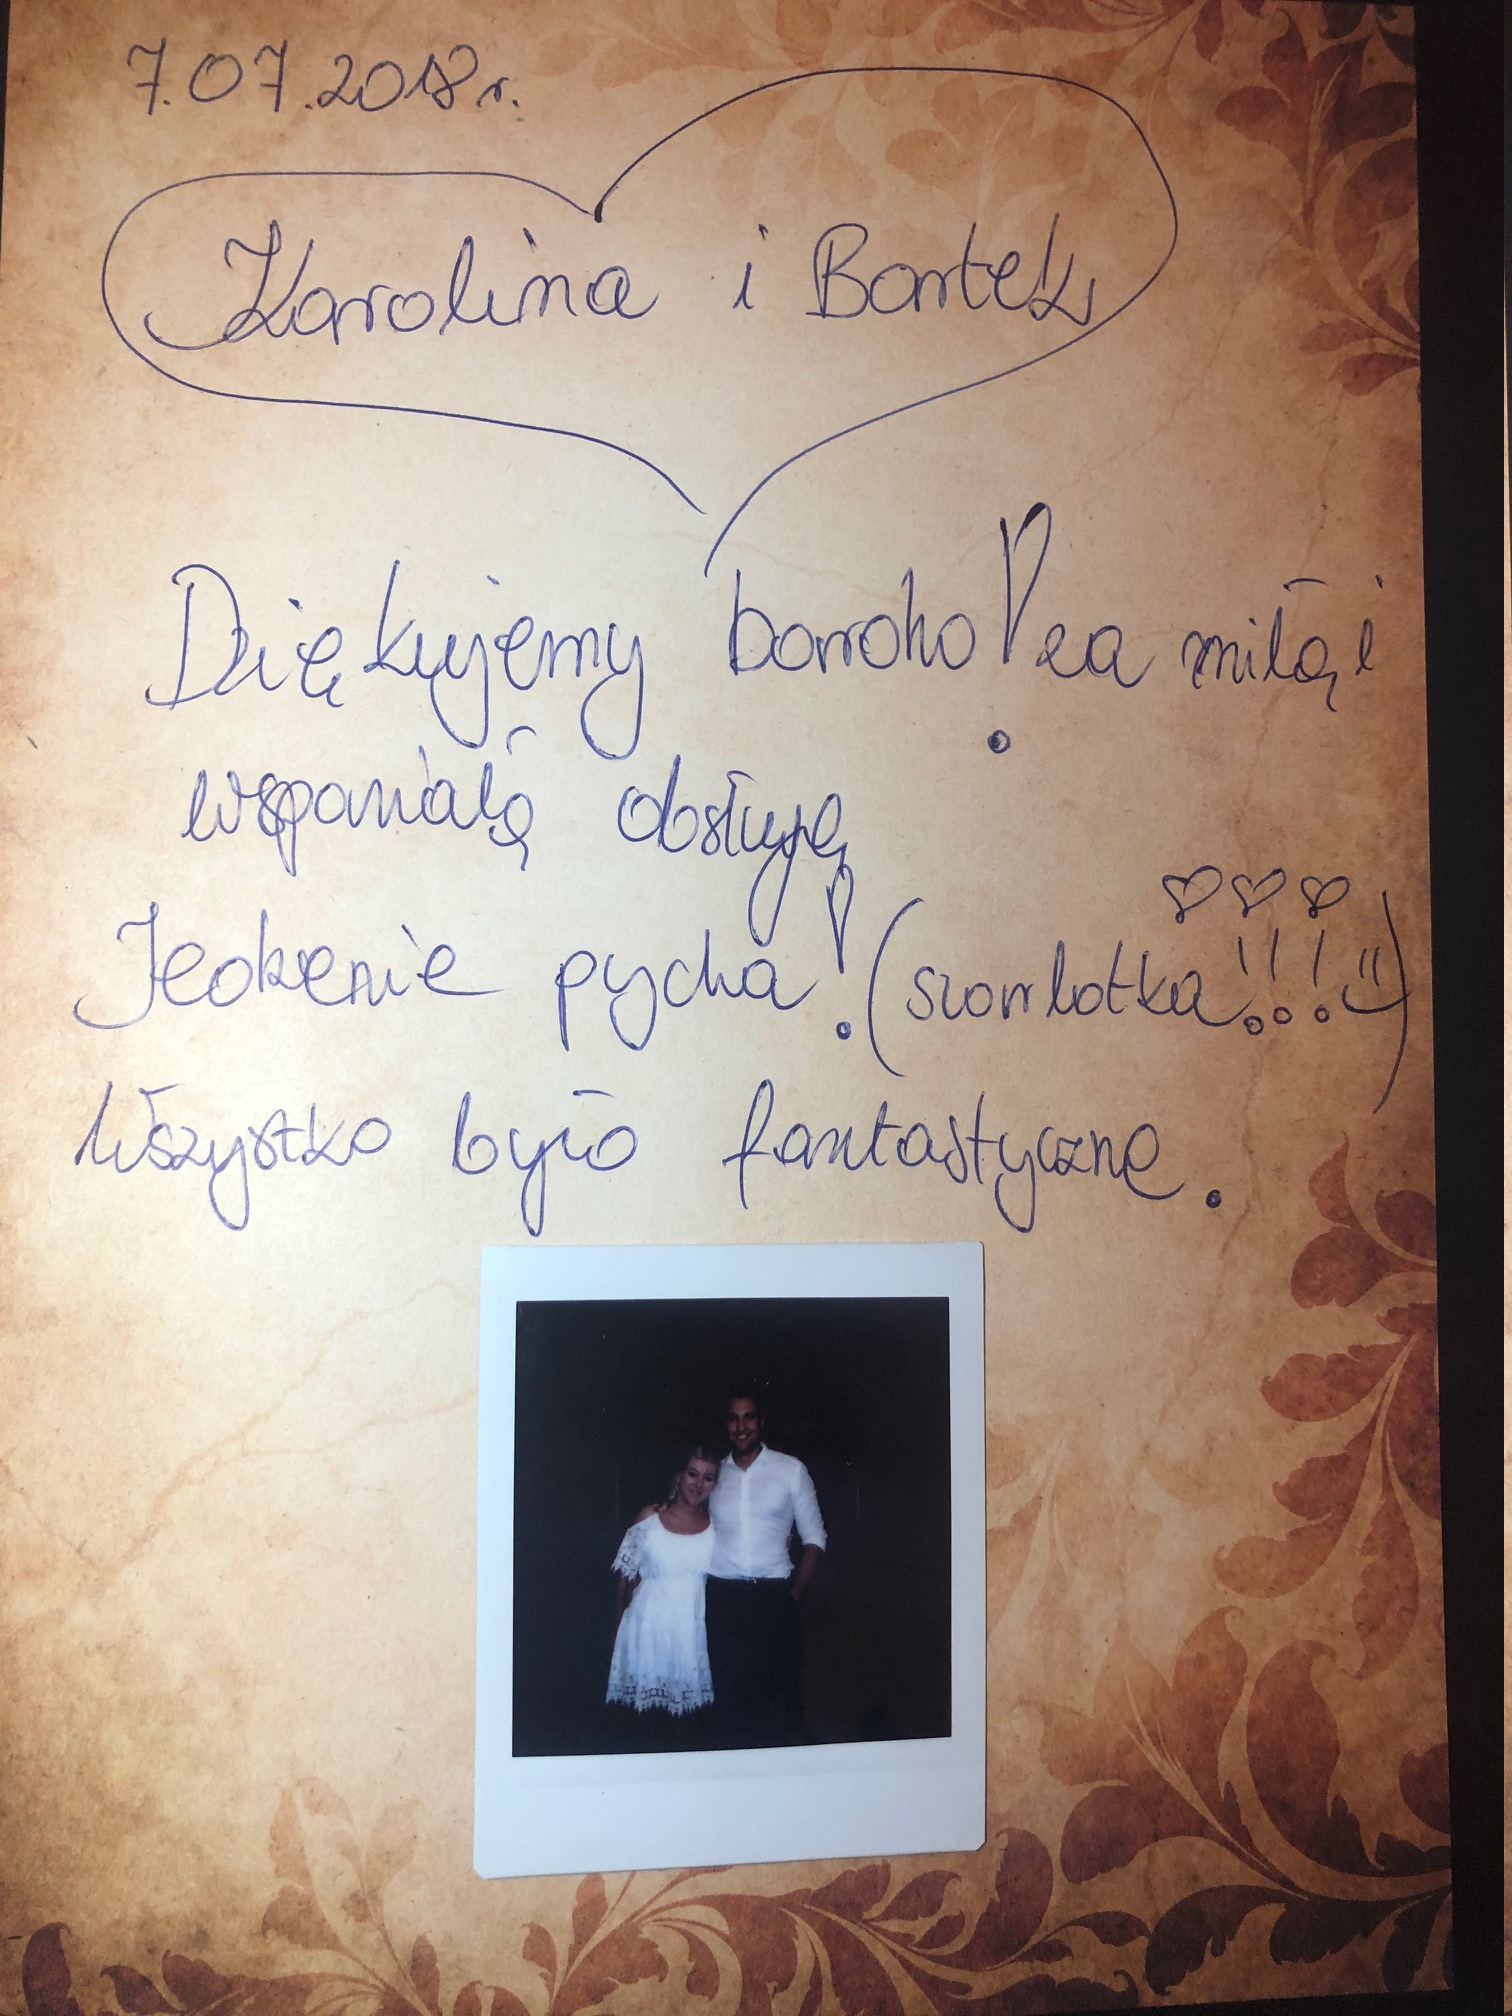 7.07.2018r.
Karolina i Bartek
Dziękujemy bardzo! za miłą i
wspaniałą obsługę
Jedzenie pycha! (szarlotka!!! =)
Wszystko było fantastyczne.